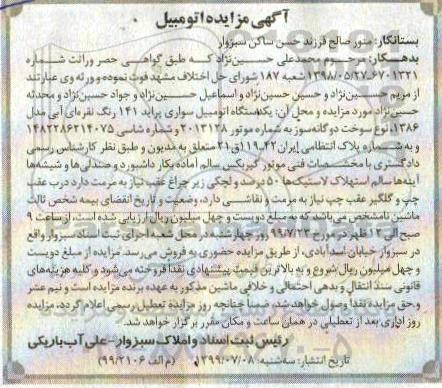 آگهی مزایده اتومبیل
بستانکار: منور صالح فرزند حسن ساکن سبزوار
بدهکار: مرحوم محمدعلی حسین‌نژاد که طبق گواهی حصر وراثت شماره
۶۷۰۱۳۲۱-۱۳۹۸/۰۵/۲۷ شعبه ۱۸۷ شورای حل اختلاف مشهد فوت نموده و ورثه وی عبارتند
از مریم حسین‌نژاد و حسین حسین‌نژاد و اسماعیل حسین‌نژاد و جواد حسین‌نژاد و محدثه
حسین‌نژاد مورد مزایده و محل آن: یکدستگاه اتومبیل سواری پراید ۱۴۱ رنگ نقره‌ای آبی مدل
۱۳۸۶، نوع سوخت دوگانه‌سوز به شماره موتور ۲۰۱۳۱۲۸ و شماره شاسی ۱۴۸۲۲۸۶۲۱۴۰۷۵
و به شماره پلاک انتظامی ایران ۴۲-۱۱۹ق۲۱ متعلق به مدیون و طبق نظر کارشناس رسمی
دادگستری با مشخصات فنی موتور گیربکس سالم آماده بکار داشبورد و صندلی‌ها و شیشه‌ها
آینه‌ها سالم استهلاک لاستیک‌ها ۵۰ درصد و لچکی زیر چراغ عقب نیاز به مرمت دارد درب عقب
چپ و گلگیر عقب چپ نیاز به مرمت و نقاشی دارد، وضعیت و تاریخ انقضای بیمه شخص ثالث
ماشین نامشخص می‌باشد که به مبلغ دویست و چهل میلیون ریال ارزیابی شده است، از ساعت ۹
صبح الی ۱۲ ظهر در مورخ ۹۹/۷/۲۳ روز چهارشنبه در محل شعبه اجرای ثبت اسناد سبزوار واقع
در سبزوار خیابان اسدآبادی، از طریق مزایده حضوری به فروش می‌رسد. مزایده از مبلغ دویست
و چهل میلیون ریال شروع و به بالاترین قیمت پیشنهادی نقدا فروخته می‌شود و کلیه هزینه‌های
قانونی سند انتقال و بدهی احتمالی و خلافی ماشین مذکور به عهده برنده مزایده است و نیم عشر
و حق مزایده نقدا وصول خواهد شد. ضمنا چنانچه روز مزایده تعطیل رسمی اعلام گردد، مزایده
روز اداری بعد از تعطیلی در همان ساعت و مکان مقرر برگزار خواهد شد.
رئیس ثبت اسناد و املاک سبزوار - علی آب‌باریکی
تاریخ انتشار: سه‌شنبه: ۱۳۹۹/۰۷/۰۸ (م الف ۹۹/۲۱۰۶)